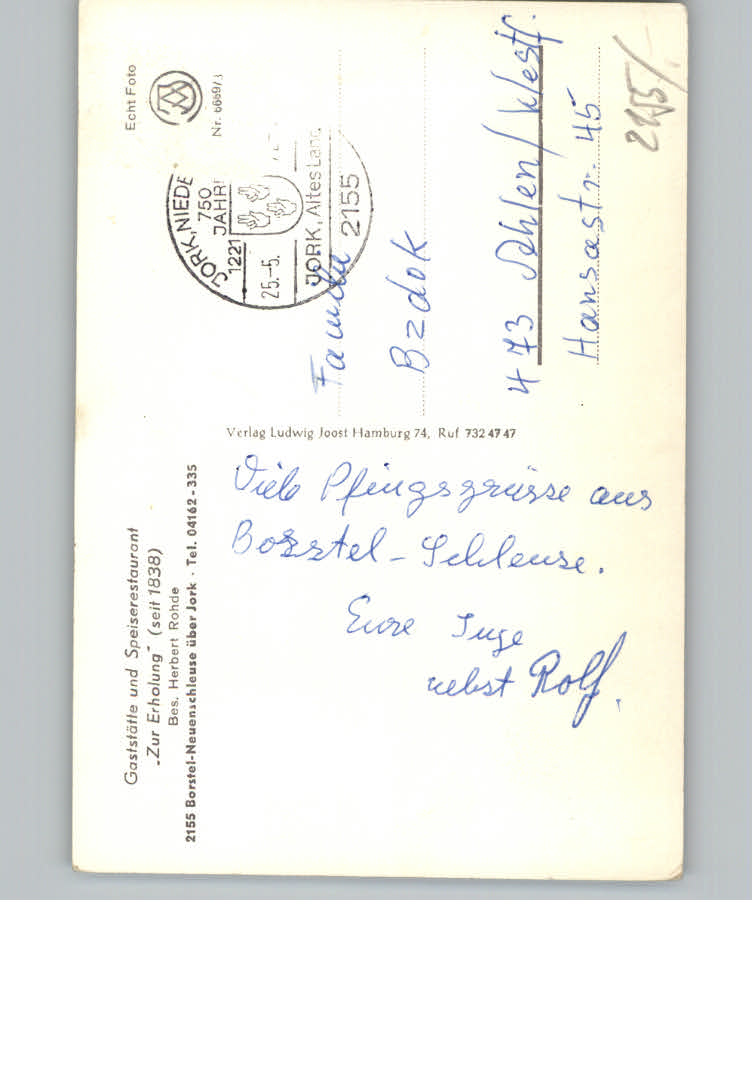 Gaststätte und Speiserestaurant
„Zur Erholung" (seit 1838)
Bes. Herbert Rohde
2155 Borstel-Neuenschleuse über Jork · Tel. 04162 - 335
Viele Pfingsgrüsse aus
Borstel - Schleuse.
Eure Inge
nebst Rolf.
Verlag Ludwig Joost Hamburg 74, Ruf 732 47 47
Echt Foto
Nr. 6669/3
JORK, NIEDE
750
JAHRE
1221
25.-5.
JORK, Altes Land
2155
Familie
Bzdok
473 Ahlen/Westf.
Hansastr. 45
2155/-